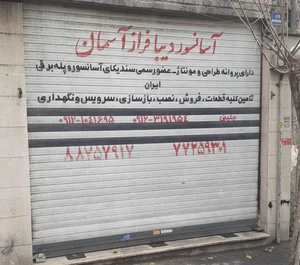 آسانسور دیبا فراز آسمان
دارای پروانه طراحی و مونتاژ ـ عضو رسمی سندیکای آسانسور و پله برقی
ایران
تامین کلیه قطعات، فروش، نصب، بازسازی، سرویس و نگهداری
۰۹۱۲-۳۱۹۱۹۵۴ ۰۹۱۲-۱۰۴۱۶۹۵
۷۷۲۵۹۳۰۹ ۸۸۷۵۷۹۱۷